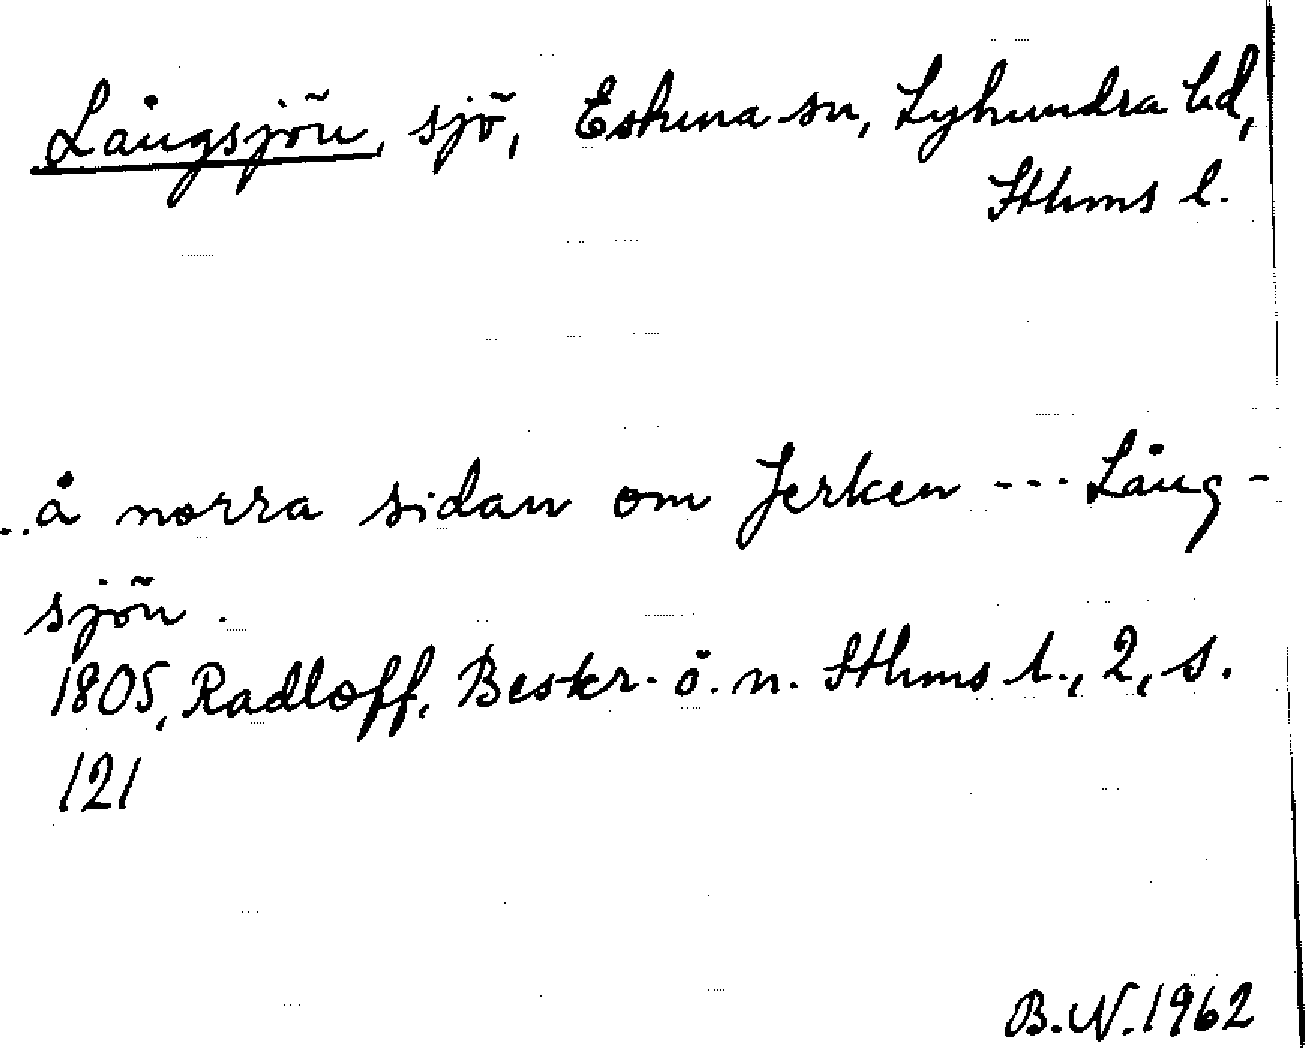 Långsjön, sjö, Estuna sn, Lyhundra hd,
Sthms l.
..å norra sidan om Jerken --- Lång-
sjön.
1805, Radloff, Beskr. ö. n. Sthms l., 2, s.
121
B.N.1962